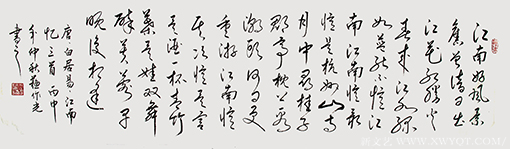 江南好風景
舊曾諳日出
江花红勝火
春来江水绿
如蓝能不憶江
南江南憶最
憶是杭州山寺
月中尋桂子
郡亭枕上看
潮頭何日更
重游江南憶
其次憶吴宫
吴酒一杯春竹
葉吴娃双舞
醉芙蓉早
晚復相逢
唐白居易江南
憶三首 丙申
年仲秋 作光
書
WWW.XWYOT.COM